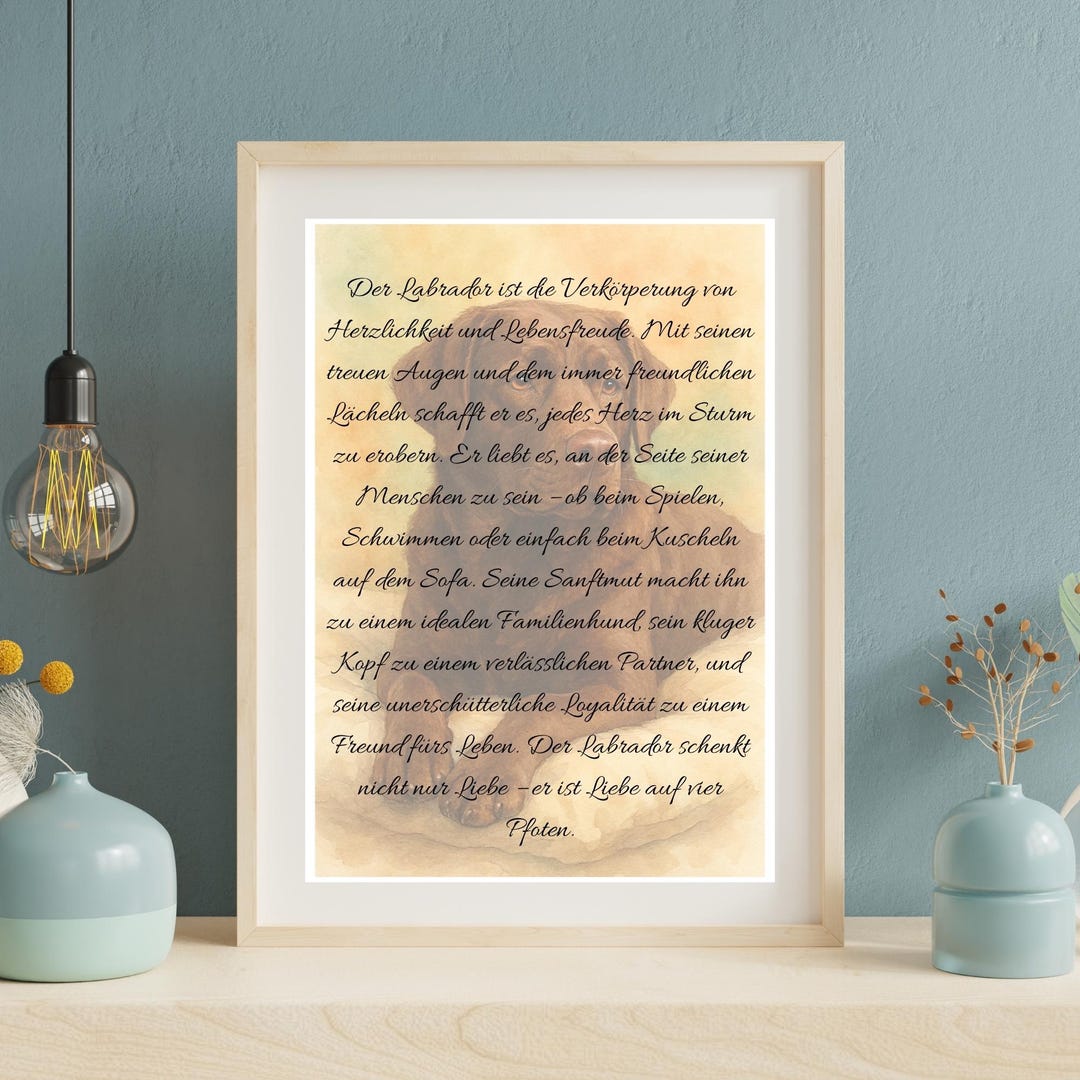 Der Labrador ist die Verkörperung von
Herzlichkeit und Lebensfreude. Mit seinen
treuen Augen und dem immer freundlichen
Lächeln schafft er es, jedes Herz im Sturm
zu erobern. Er liebt es, an der Seite seiner
Menschen zu sein – ob beim Spielen,
Schwimmen oder einfach beim Kuscheln
auf dem Sofa. Seine Sanftmut macht ihn
zu einem idealen Familienhund, sein kluger
Kopf zu einem verlässlichen Partner, und
seine unerschütterliche Loyalität zu einem
Freund fürs Leben. Der Labrador schenkt
nicht nur Liebe – er ist Liebe auf vier
Pfoten.